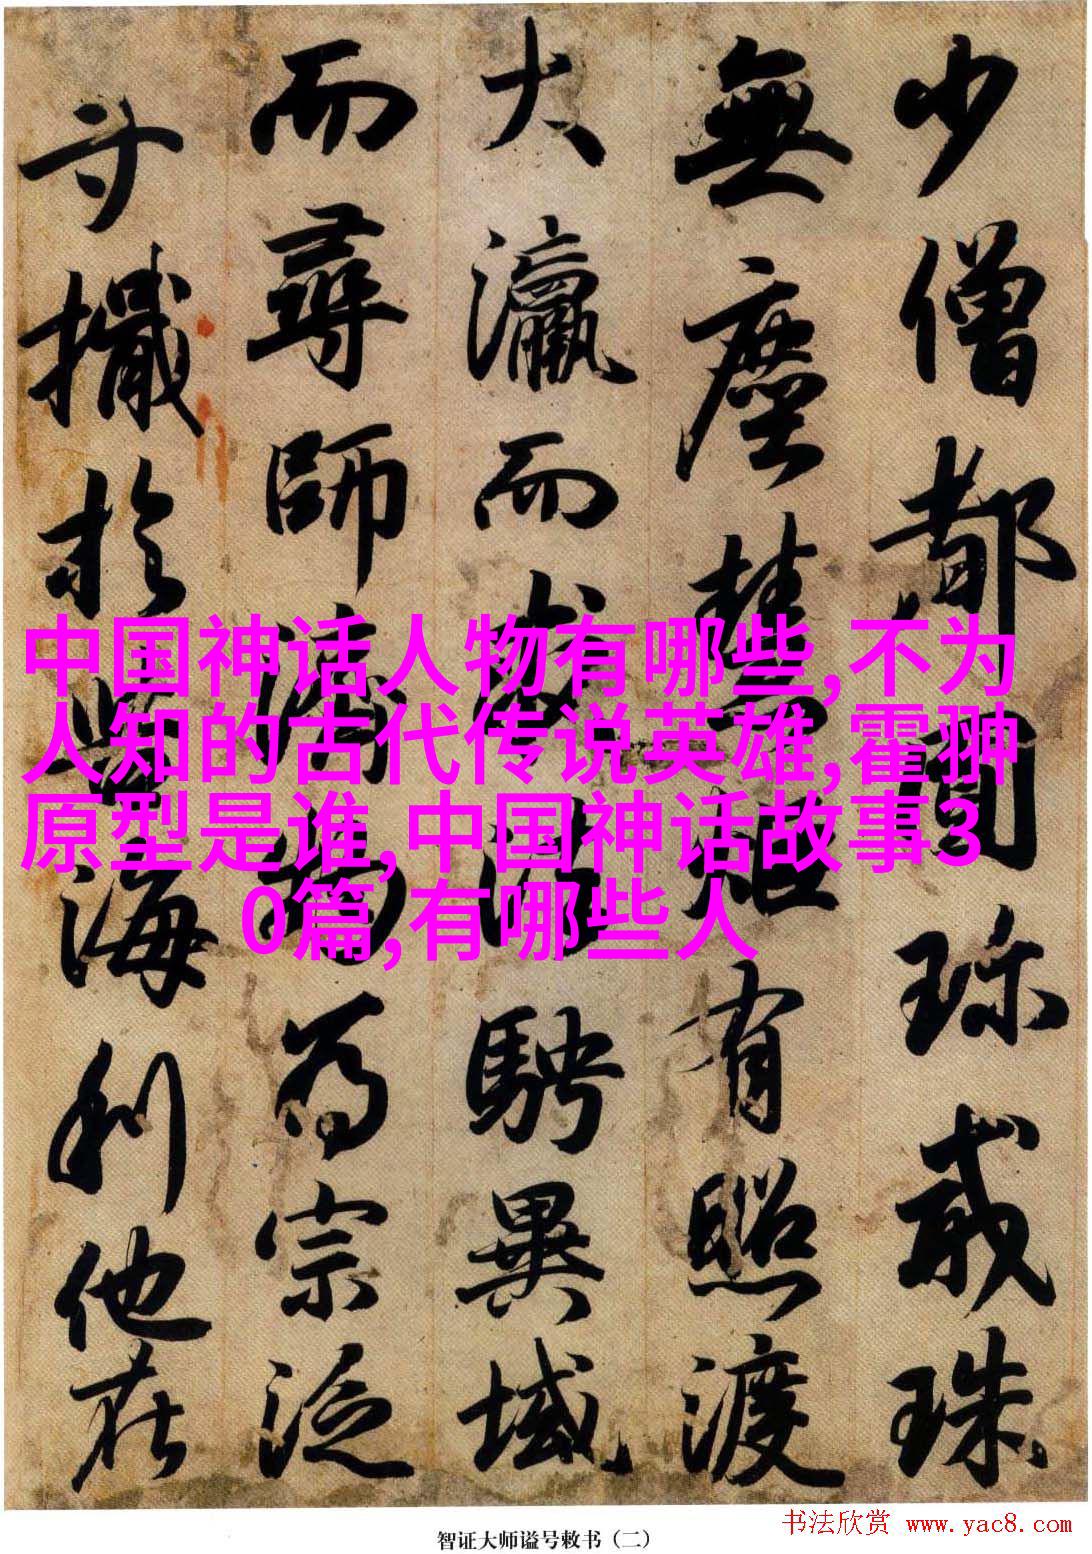 少僧都圓珍戒珠
無塵慧炬有照渡
大瀛而求法騁異域
而尋師濟物為宗泛
寸檝於苦海利他在
中国神话人物有哪些,不为
人知的古代传说英雄,霍翀
原型是谁,中国神话故事3
0篇,有哪些人
智证大师谥号敕书（二）
书法欣赏 www.yac8.com